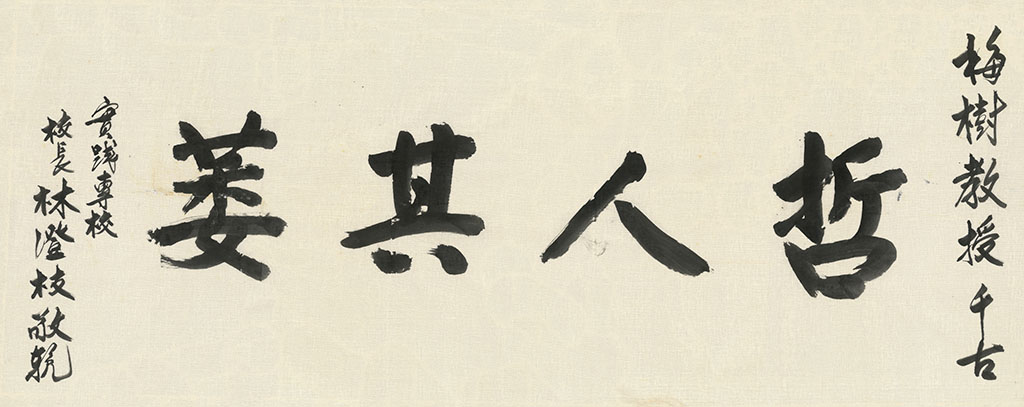 梅樹教授千古
哲人其萎
實踐專校
校長林澄枝敬輓